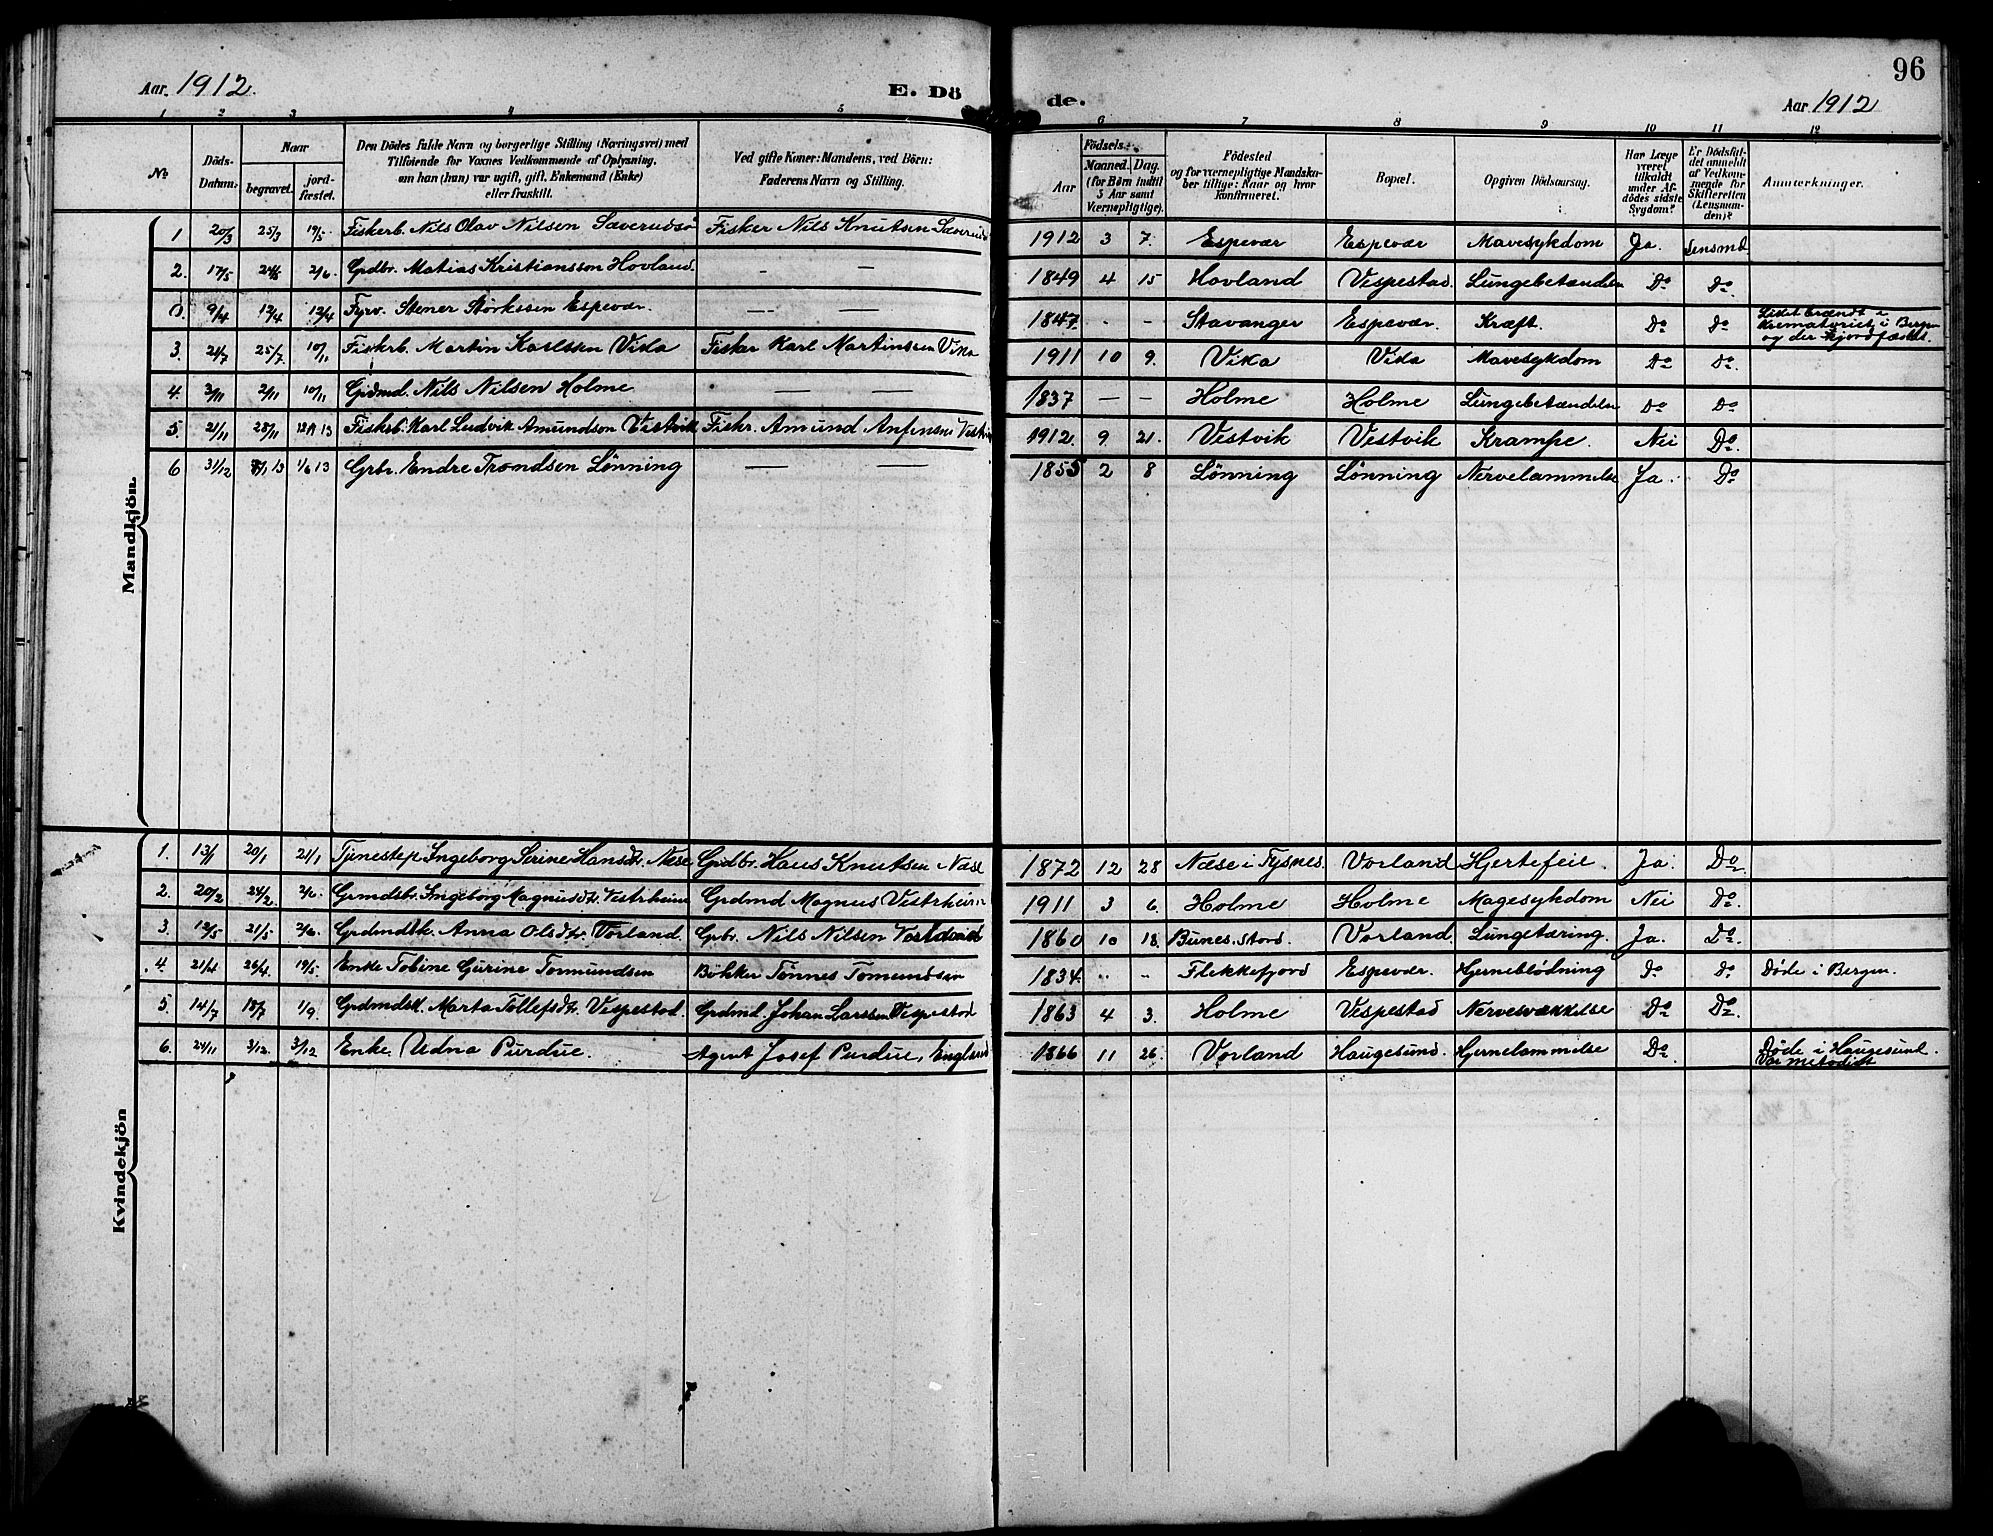 96
Aar. 1912. E. Dö de. Aar 1912
1 2 3 4 5 6 7 8 9 10 11 12
№
Döds-
Datum.
Naar
begravet.
jord-
fæstet.
Den Dödes fulde Navn og borgerlige Stilling (Næringsvei) med
Tilföiende for Voxnes Vedkommende af Oplysning,
om han (hun) var ugift, gift, Enkemand (Enke)
eller fraskilt.
Ved gifte Koner: Mandens, ved Börn:
Faderens Navn og Stilling.
Födsels-
Aar
Maaned. Dag.
(for Börn indtil
5 Aar samt
Værnepligtige).
Födested
og for værnepligtige Mandska-
ber tillige: Naar og hvor
konfirmeret.
Bopæl.
Opgiven Dödsaarsag.
Har Læge
været
tilkaldt
under Af-
dödes sidste
Sygdom?
Er Dödsfal-
det anmeldt
af Vedkom-
mende for
Skifteretten
(Lensman-
den)?
Anmærkninger.
Mandkjön.
1 20/3 25/3 19/5 Fiskerb. Nils Olav Nilsen Sæverudsö Fisker Nils Knutsen Sæverud 1912 3 7. Espevær Espevær Mavesykdom Ja. Lensmd
2. 17/5 24/5 2/6. Grdbr. Matias Kristiansson Hovland. - — 1849 4 15 Hovland Vespestad. Lungebetændelse Do Do
0. 9/4 12/4 12/4 Fyrv. Stener Störkssen Espevær. — — 1847 - - Stavanger Espevær. Kræft. Do Do Liket brændt i
Krematoriet i Bergen
og der hjordfæstet.
3. 21/7 25/7 10/11 Fiskerb. Martin Karlssen Vida Fisker Karl Martinssen Vika 1911 10 9. Vika Vida Mavesykdom Do Do.
4. 3/11 2/11 10/11 Grdmd. Nils Nilsen Holme — — 1837 — — Holme Holme Lungebetændelse Do Do
5. 21/11 28/11 13 Fiskerb. Karl Ludvik Amundson Vestvik Fiskr. Amund Anfinsen Vestvik 1912. 9 21. Vestvik Vestvik Krampe. Nei Do.
6 31/12 13 1/6 13 Grbr. Endre Trondsen Lönning — — 1855 2 8 Lönning Lönning Nervelammelse Ja. Do
Kvindekjön
1. 13/1 20/1 21/1 Tjenestep Ingeborg Serine Hansdtr. Næse Grdbr. Hans Knutsen Næse 1872 12 28 Næse i Tysnes. Vorland Hjertefeie. Ja. Do
2. 20/2 24/2 2/6. Grmdsbr. Ingeborg Magnusdtr. Vestrheim Grdmd Magnus Vestrheim 1911 3 6. Holme Holme Magesykdom Nei Do.
3. 12/5 21/5 2/6. Grdmdsk. Anna Olsdtr. Vorland. Grbr. Nils Nilsen Vorland 1860 10 18. Bunes. Stord. Vorland. Lungetæring. Ja. Do.
4. 21/4 26/4. 19/5. Enke Tobine Gurine Tormundsen Bökker Tönnes Tomundsen 1834. " - Flekkefjord Espevær. Hjerneblödning Do Do Døde i Bergen.
5 14/7 18/7 1/9. Grdmdsk. Marta Tollefsdtr. Vespestad. Grdmd. Johan Larssen Vespestad 1863 4 3. Holme Vespestad Nervesvækkelse Do Do.
6. 24/11 3/12. 3/12 Enke. Udna Purdue. Agent Josef Purdue, England 1866 11 26. Vorland Haugesund. Hjernelammelse Do. Døde i Haugesund.
Var metodist